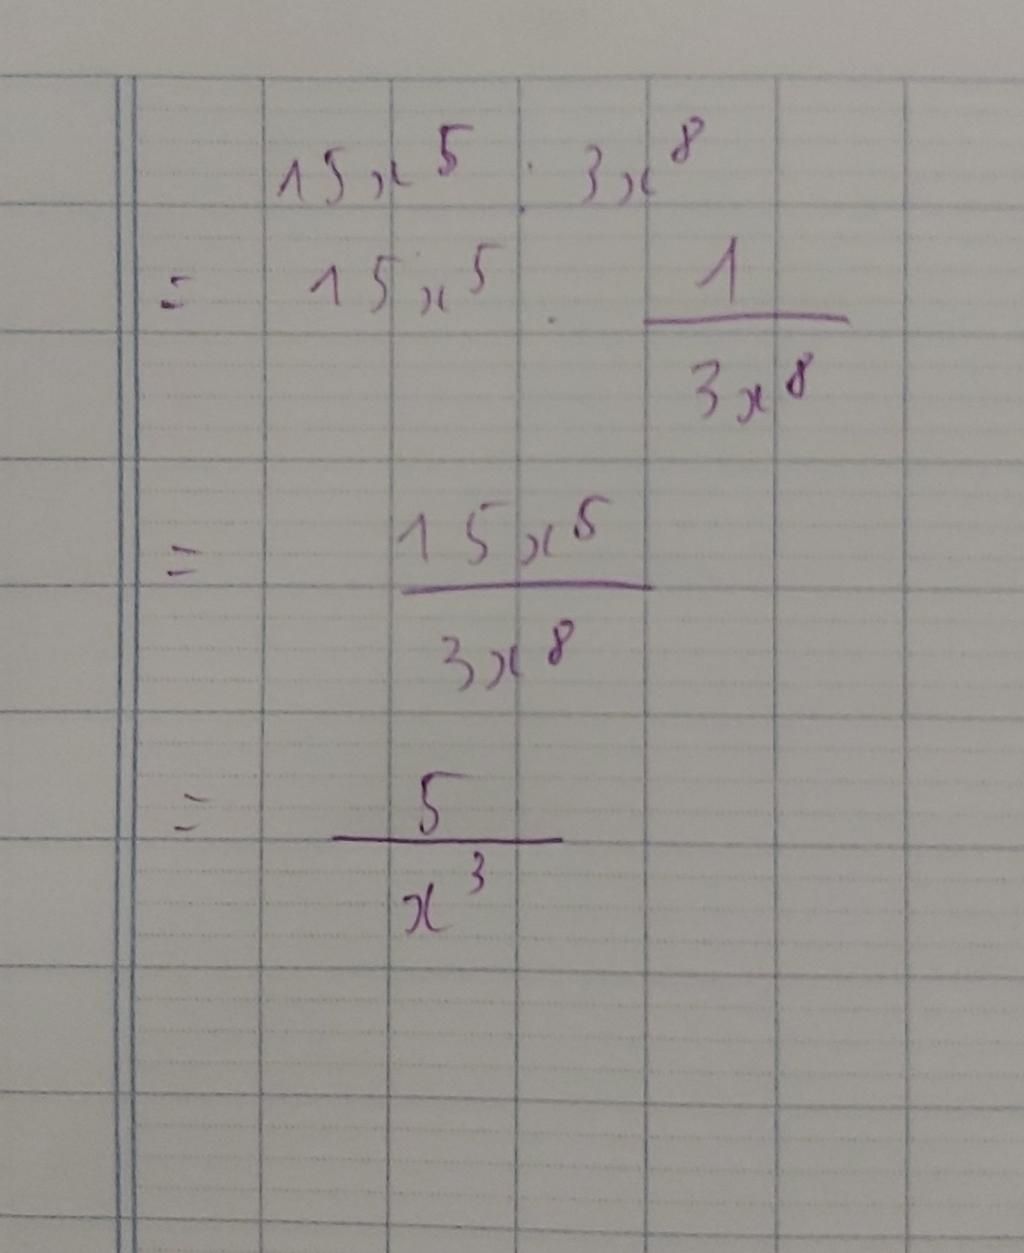 15x⁵ : 3x⁸
= 15x⁵ . 1/3x⁸
= 15x⁵/3x⁸
= 5/x³